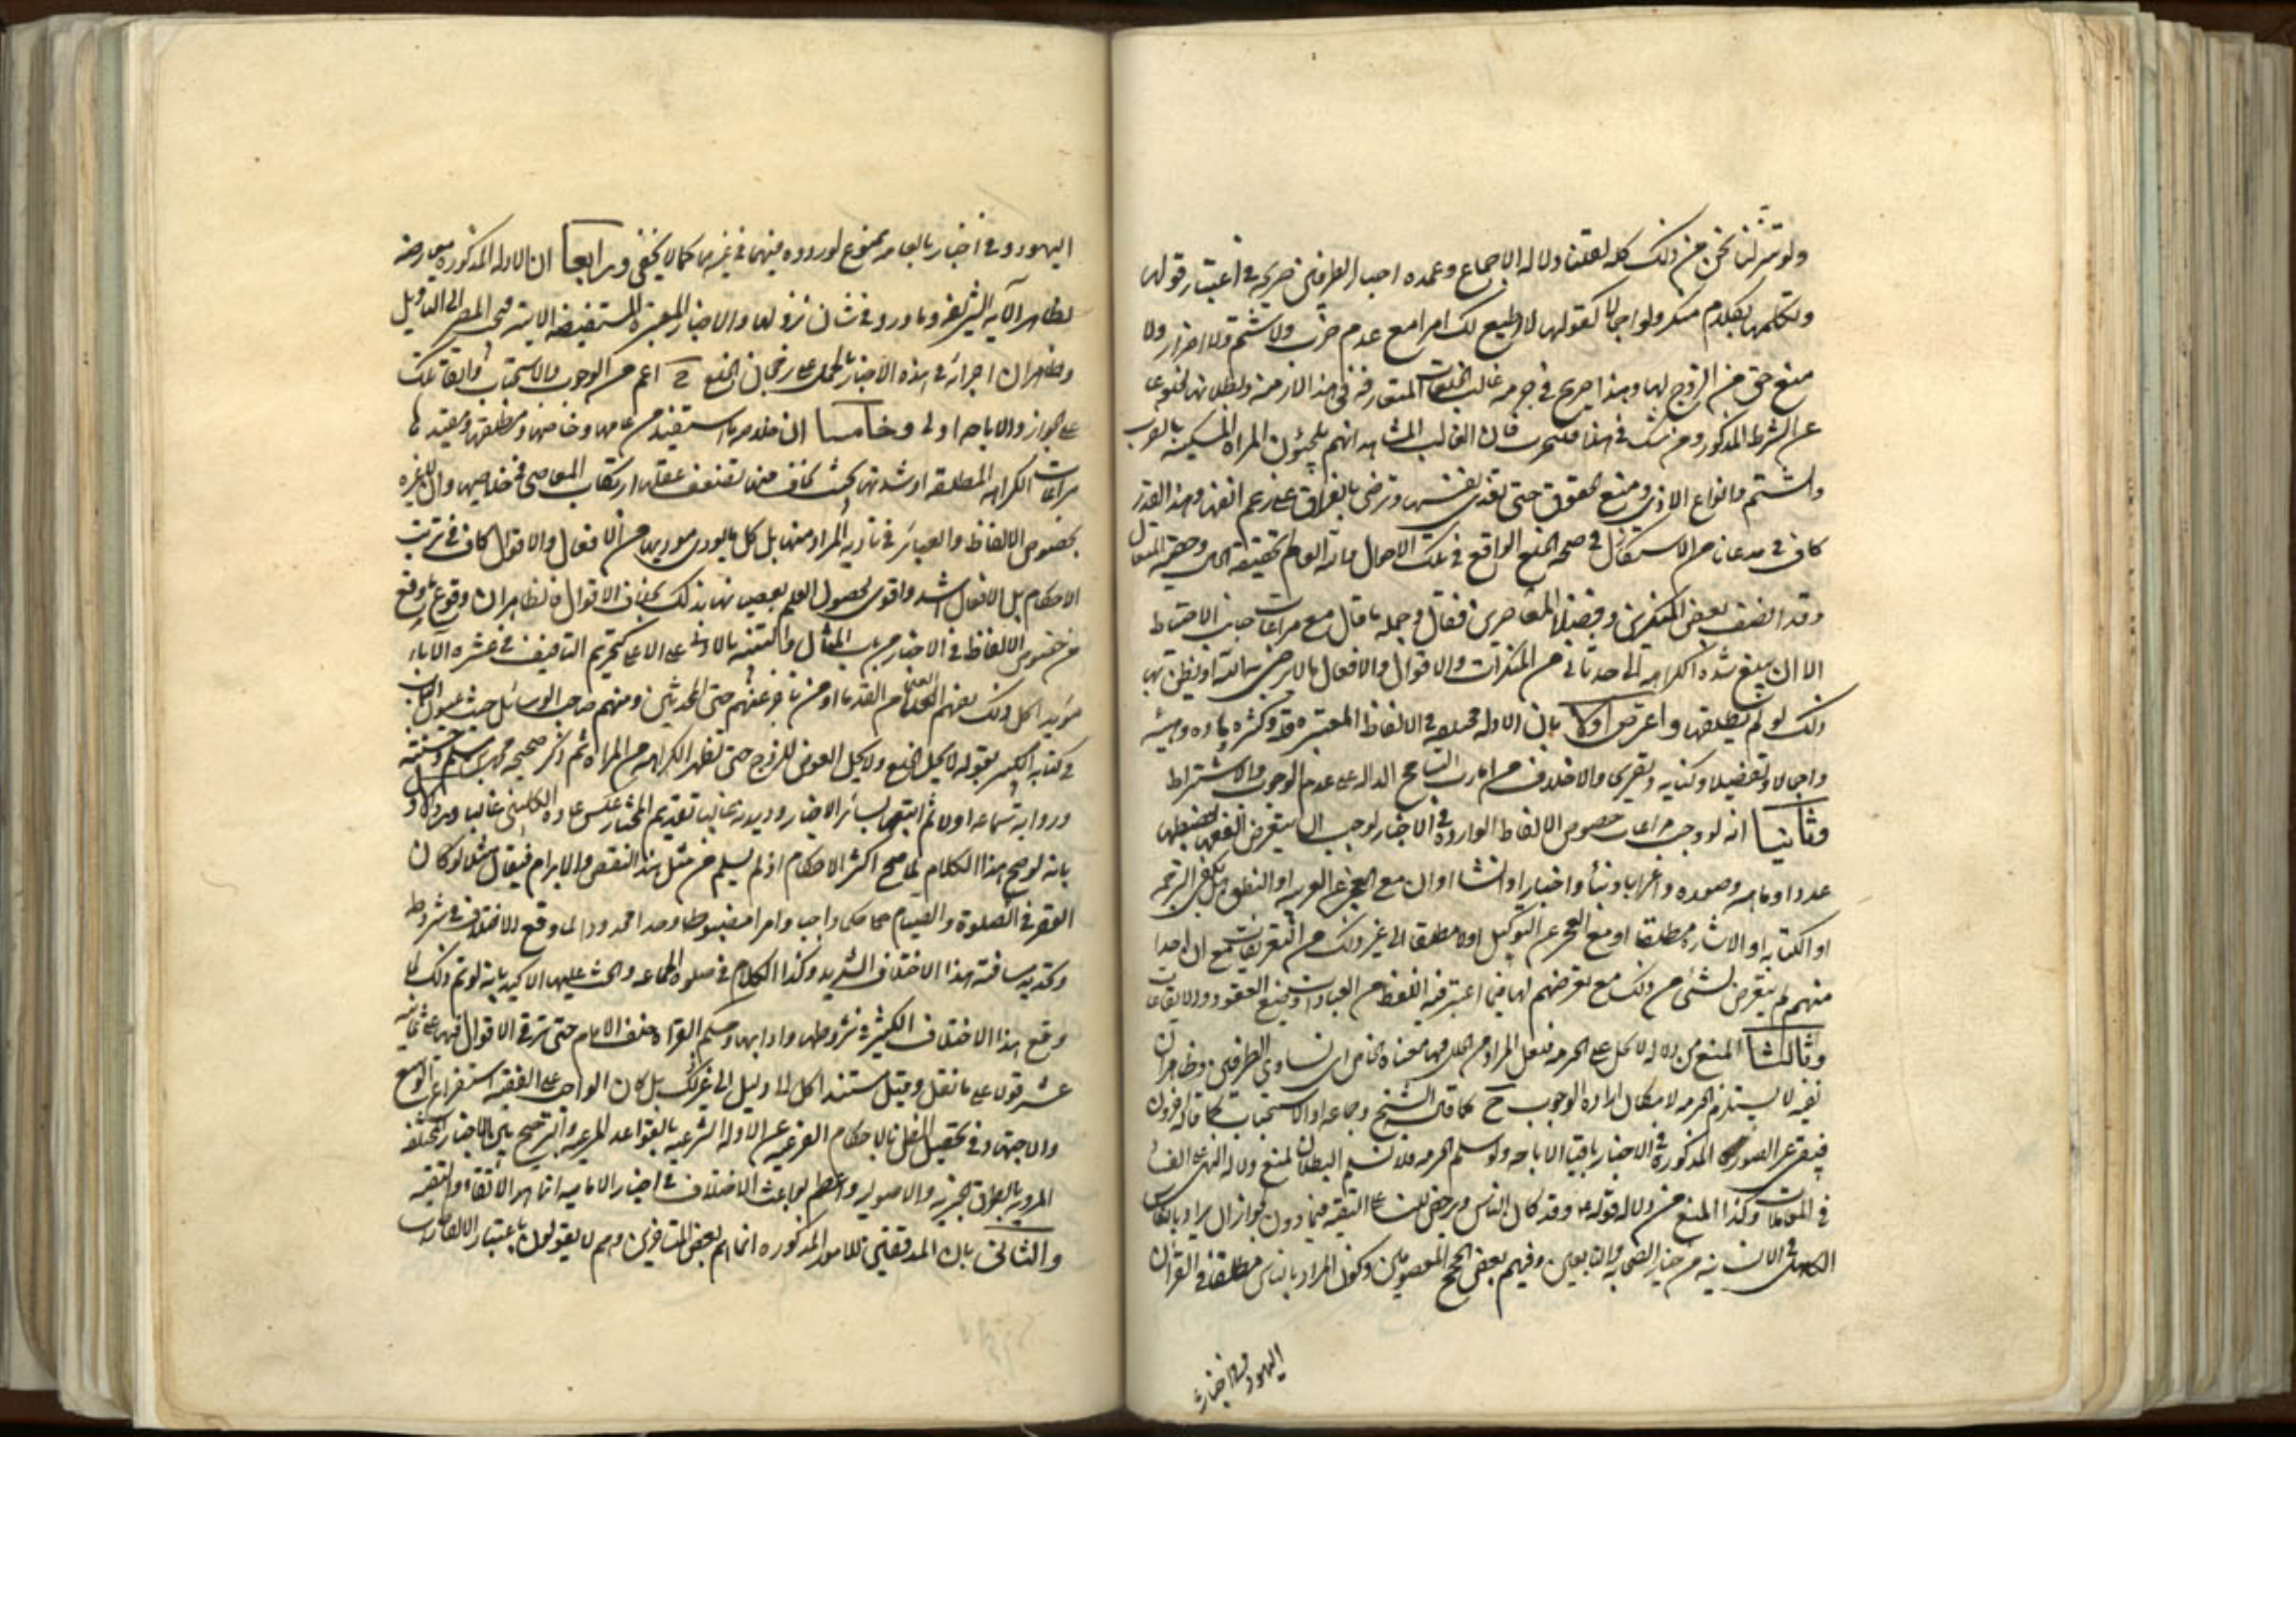 ولو تنزلنا نحن من ذلك كله لقلنا دلالة الاجماع وعمدة اخبار الطرفين صريحة في اعتبار قولها
وتكلمها بكلام منكر ولو اجمالا كقولها لا اطيع لك امرا مع عدم ضرب ولا شتم ولا اضرار ولا
منع حق من الزوج لها وهذا صريح في حرمة غالب الخلعات المتعارفة في هذه الازمنة وبطلانها لخلوها
عن الشرط المذكور ومن شك في هذا فليجرب فان الغالب المشاهد انهم يلجئون المراة المسكينة بالضرب
والشتم وانواع الاذى ومنع الحقوق حتى تفدى نفسها وترضى بالفراق على رغم انفها وهذا القدر
كاف في مدعانا من الاستشكال في صحة الخلع الواقع في تلك الاحوال والله العالم بحقيقة الحال وحقية المقال
وقد انصف بعض المتفكرين وفضلاء المعاصرين فقال في جملة ما قال مع مراعات جانب الاحتياط
الا ان يبلغ شدة الكراهة الى حد تاتي من المنكرات والاقوال والافعال ما لا يرضى به الله او يظن بها
ذلك لو لم يطلقها واعترض اولا بان الادلة مختلفة في الالفاظ المعتبرة قلة وكثرة مادة وهيئة
واجمالا وتفصيلا وكناية وتصريحا والاختلاف من امارات التسامح الدالة على عدم الوجوب والاشتراط
وثانيا انه لو وجب مراعات خصوص الالفاظ الواردة في الاخبار لوجب ان يتعرض الفقهاء لضبطها
عددا ومادة وصورة واعرابا وبناء واخبارا وانشاء وان مع العجز عن العربية او النطق هل يكفى الترجمة
او الكتابة او الاشارة مطلقا او مع العجز عن التوكيل اولا مطلقا الى غير ذلك من التفريعات مع ان احدا
منهم لم يتعرض لشئ من ذلك مع تعرضهم لها فيما اعتبر فيه اللفظ من العبادات وصيغ العقود والايقاعات
وثالثا المنع من دلالة لا يحل على الحرمة فلعل المراد من الحل فيها معناه الخاص اى تساوى الطرفين وظاهر ان
نفيه لا يستلزم الحرمة لامكان ارادة الوجوب ح كما قال الشيخ وجماعة او الاستحباب كما قاله اخرون
فيبقى غير الصورة المذكورة في الاخبار باقيا الاباحة ولو سلم الحرمة فلا نسلم البطلان لمنع دلالة النهى على الفساد
في المعاملات وكذا المنع من دلالة قوله ع وقد كان الناس يرخص للنساء على التقية فيما دون لجواز ان يراد بالناس
الكامل في الانسانية من خيار الصحابة والتابعين وفيهم بعض الحجج المعصومين وكون المراد بالناس مطلقا في القران
اليهود وفي اخبارنا
اليهود وفي اخبارنا العامة ممنوع لوروده فيهما في غيرهما كما لا يخفى ورابعا ان الادلة المذكورة معارضة
لظاهر الآية الشريفة وما ورد في شان نزولها والاخبار المعتبرة المستفيضة الاتية فيجب المصير الى التاويل
وظاهر ان اجرائه في هذه الاخبار بالحمل على رجحان الخلع ح اعم من الوجوب والاستحباب وابقاء تلك
على الجواز والاباحة اولى وخامسا ان خلاصة ما استفيد من عامها وخاصها ومطلقها ومقيدها
مراعات الكراهة المطلقة او شدتها بحيث يخاف منها تقنف عقلها ارتكاب المعاصى في خلاصها وان لا غيره
بخصوص الالفاظ والعبائر في تادية المراد منها بل كل ما يودى موديها من الافعال والاقوال كاف في ترتيب
الاحكام بل الافعال اشد واقوى لحصول العلم بعصيانها بذلك بخلاف الاقوال فالظاهر ان وقوع ما وقع
من خصوص الالفاظ في الاخبار من باب المثال والتنبيه بالادنى على الاعلى كتحريم التافيف في عشرة الآباء
مؤيدا كل ذلك بفهم العلماء من القدماء ومن تاخر عنهم حتى المحدثين ومنهم صاحب الوسائل حيث عنون الباب
في كتابه الكبير بقوله لا يحل الخلع ولا يحل العوض للزوج حتى تظهر الكراهة من المراة ثم ذكر صحيحة محمد بن مسلم وحسنته
ورواية سماعة اولا ثم اتبعها بسائر الاخبار وديدنه غالبا تقديم المختار عكس عادة الكلينى غالبا ورد الاول
بانه لو صح هذا الكلام لما صح اكثر الاحكام اذ لم يسلم من مثل هذا النقض والابرام فيقال مثلا لو كان
القصر في الصلوة والصيام حكما واجبا وامرا مضبوطا وحدا محدودا لما وقع الاختلاف في شروطه
وتحديد مسافته هذا الاختلاف الشديد وكذا الكلام في صلوة الجماعة والحث عليها الاكيد بانه لو تم ذلك لما
وقع هذا الاختلاف الكثير في شروطها وادابها وحكم القراءة خلف الامام حتى ترقى الاقوال فيها على ثمانية
عشر قولا على ما نقل وقيل مستند الكل الى دليل الى غير ذلك بل كان الواجب على الفقيه استفراغ الوسع
والاجتهاد في تحصيل الظن بالاحكام الفرعية عن الادلة الشرعية بالقواعد المرعية والترجيح بين الاخبار المختلفة
المروية بالطرق الجزئية والاصولية واعظم بواعث الاختلاف في اخبار الامامية انما هو الاتقاء والتقية
والثاني بان المدققين للامور المذكورة انما هم بعض المتاخرين وهم لا يقولون باعتبار الالفاظ